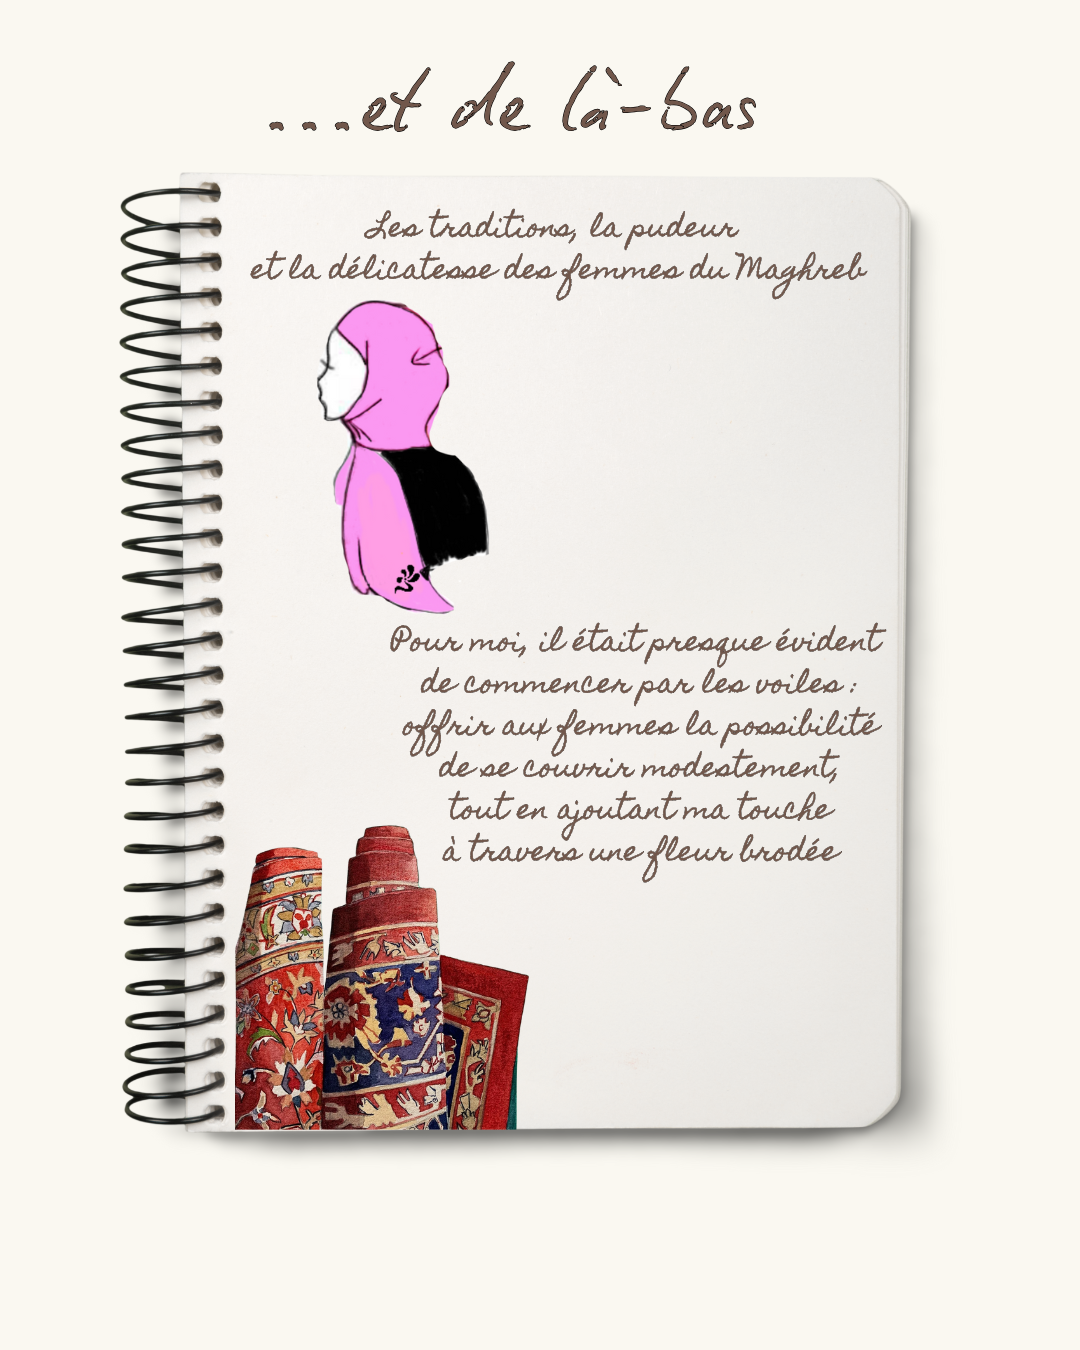 ...et de là-bas
Les traditions, la pudeur
et la délicatesse des femmes du Maghreb
Pour moi, il était presque évident
de commencer par les voiles :
offrir aux femmes la possibilité
de se couvrir modestement,
tout en ajoutant ma touche
à travers une fleur brodée